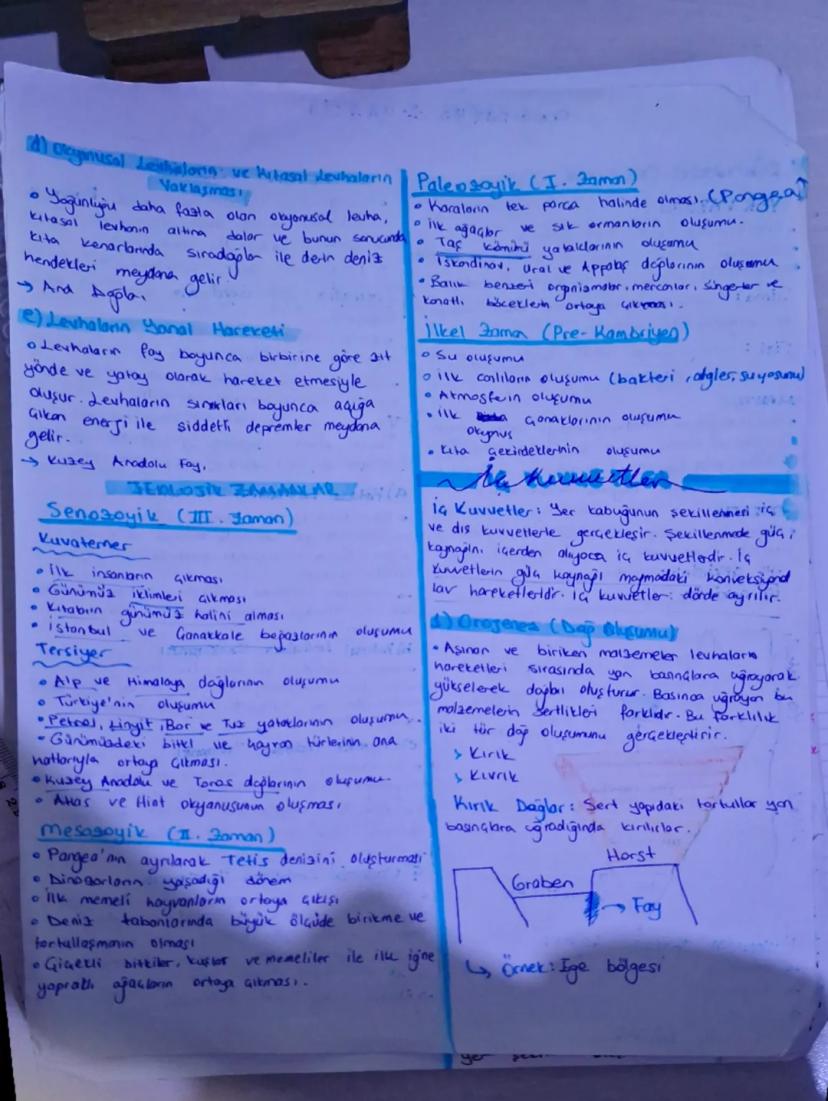 d) Okyonusal Levhaların ve Kıtasal Levhaların
Yaklaşması
• Yoğunluğu daha fazla olan okyonusal levha,
kıtasal levhanın altına dalar ve bunun sonucunda
kıta kenarlarında sıradağlar ile derin deniz
hendekleri meydana gelir.
→ And Dağları
e) Levhaların Yanal Hareketi
• Levhaların fay boyunca birbirine göre zıt
yönde ve yatay olarak hareket etmesiyle
oluşur. Levhaların sınırları boyunca açığa
çıkan energi ile şiddetli depremler meydana
gelir.
→ Kuzey Anadolu Fay,
JEOLOJİK ZAMANLAR
Senozoyik (III. Zaman)
Kuvaterner
• İlk insanların çıkması
• Günümüz iklimleri çıkması
• Kıtaların günümüz halini alması
• İstanbul ve Çanakkale boğazlarının oluşumu
Tersiyer
• Alp ve Himalaya dağlarının oluşumu
• Türkiye'nin oluşumu
• Petrol, Linyit, Bor ve Tuz yataklarının oluşumu.
• Günümüzdeki bitki ve hayvan türlerinin ana
hatlarıyla ortaya çıkması.
• Kuzey Anadolu ve Toros dağlarının oluşumu
• Atlas ve Hint okyanusunun oluşması
Mesozoyik (II. Zaman)
• Pangea'nın ayrılarak Tetis denizini oluşturması
• Dinozorların yaşadığı dönem
• İlk memeli hayvanların ortaya çıkışı
• Deniz tabanlarında büyük ölçüde birikme ve
tortullaşmanın olması
• Çiçekli bitkiler, kuşlar ve memeliler ile ilk iğne
yapraklı ağaçların ortaya çıkması.
Paleozoyik (I. Zaman)
• Karaların tek parça halinde olması. (Pangea)
• İlk ağaçlar ve sık ormanların oluşumu.
• Taş kömürü yataklarının oluşumu
• İskandinav, Ural ve Appalaş dağlarının oluşumu
• Balık benzeri organizmalar, mercanlar, süngerler ve
kanatlı böceklerin ortaya çıkması.
İlkel Zaman (Pre-Kambriyen)
• Su oluşumu
• İlk canlıların oluşumu (bakteri, algler, su yosunu)
• Atmosferin oluşumu
• İlk çanaklarının oluşumu
Okyanus
• Kıta çekirdeklerinin oluşumu
İç Kuvvetler
İç Kuvvetler: Yer kabuğunun şekillenmesi iç
ve dış kuvvetlerle gerçekleşir. Şekillenmede güç,
kaynağını içerden alıyorsa iç kuvvetlerdir. İç
kuvvetlerin güç kaynağı magmadaki konveksiyonel
lav hareketleridir. İç kuvvetler: dörde ayrılır.
1) Orojenez (Dağ Oluşumu)
• Aşınan ve biriken malzemeler levhaların
hareketleri sırasında yan basınçlara uğrayarak
yükselerek dağları oluşturur. Basınca uğrayan bu
malzemelerin sertlikleri farklıdır. Bu farklılık
iki tür dağ oluşumunu gerçekleştirir.
> Kırık
> Kıvrık
Kırık Dağlar: Sert yapıdaki tortullar yan
basınçlara uğradığında kırılırlar.
Horst
Graben
→ Fay
↳ Örnek: Ege bölgesi